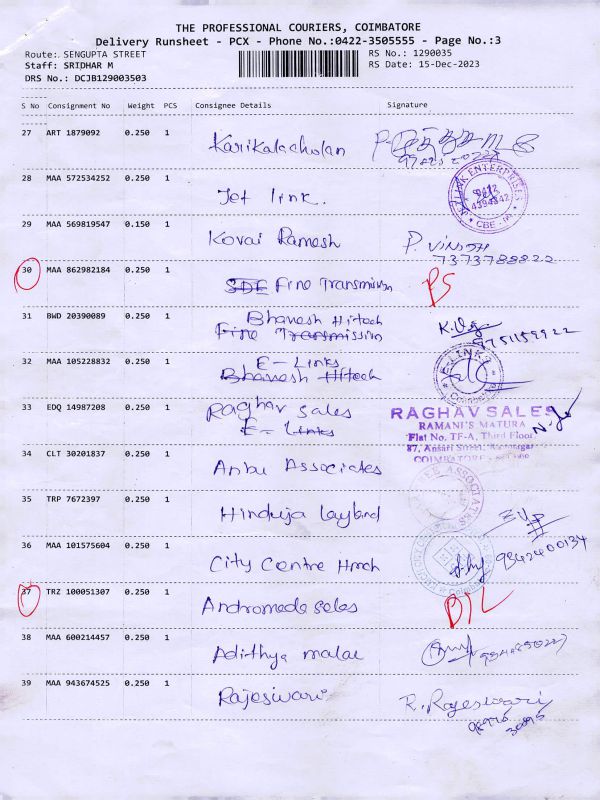 THE PROFESSIONAL COURIERS, COIMBATORE
Delivery Runsheet - PCX - Phone No.:0422-3505555 - Page No.:3
Route: SENGUPTA STREET RS No.: 1290035
Staff: SRIDHAR M RS Date: 15-Dec-2023
DRS No.: DCJB129003503
S No Consignment No Weight PCS Consignee Details Signature
27 ART 1879092 0.250 1 Karikalacholan
28 MAA 572534252 0.250 1 Jet link.
JET LINK ENTERPRISES
4394342
* CBE - *
29 MAA 569819547 0.150 1 Kovai Ramesh P. VINOTH
7373788822
30 MAA 862982184 0.250 1 SDE Fine Transmission PS
31 BWD 20390089 0.250 1 Bhavesh Hitech
Fine Transmission 9751159922
32 MAA 105228832 0.250 1 E-Links
Bhavesh Hitech
E-LINKS
Coimbatore
33 EDQ 14987208 0.250 1 Raghav Sales
E-Links
RAGHAV SALES
RAMANI'S MATURA
Flat No. TF-A, Third Floor
87, Ansari Street, Ramnagar
COIMBATORE
34 CLT 30201837 0.250 1 Anbu Associates
ASSOCIATES
35 TRP 7672397 0.250 1 Hinduja Leyland
36 MAA 101575604 0.250 1 City Centre Hmch 9842400134
37 TRZ 100051307 0.250 1 Andromeda Sales DIL
38 MAA 600214457 0.250 1 Adithya malai
39 MAA 943674525 0.250 1 Rajeswari R. Rajeswari